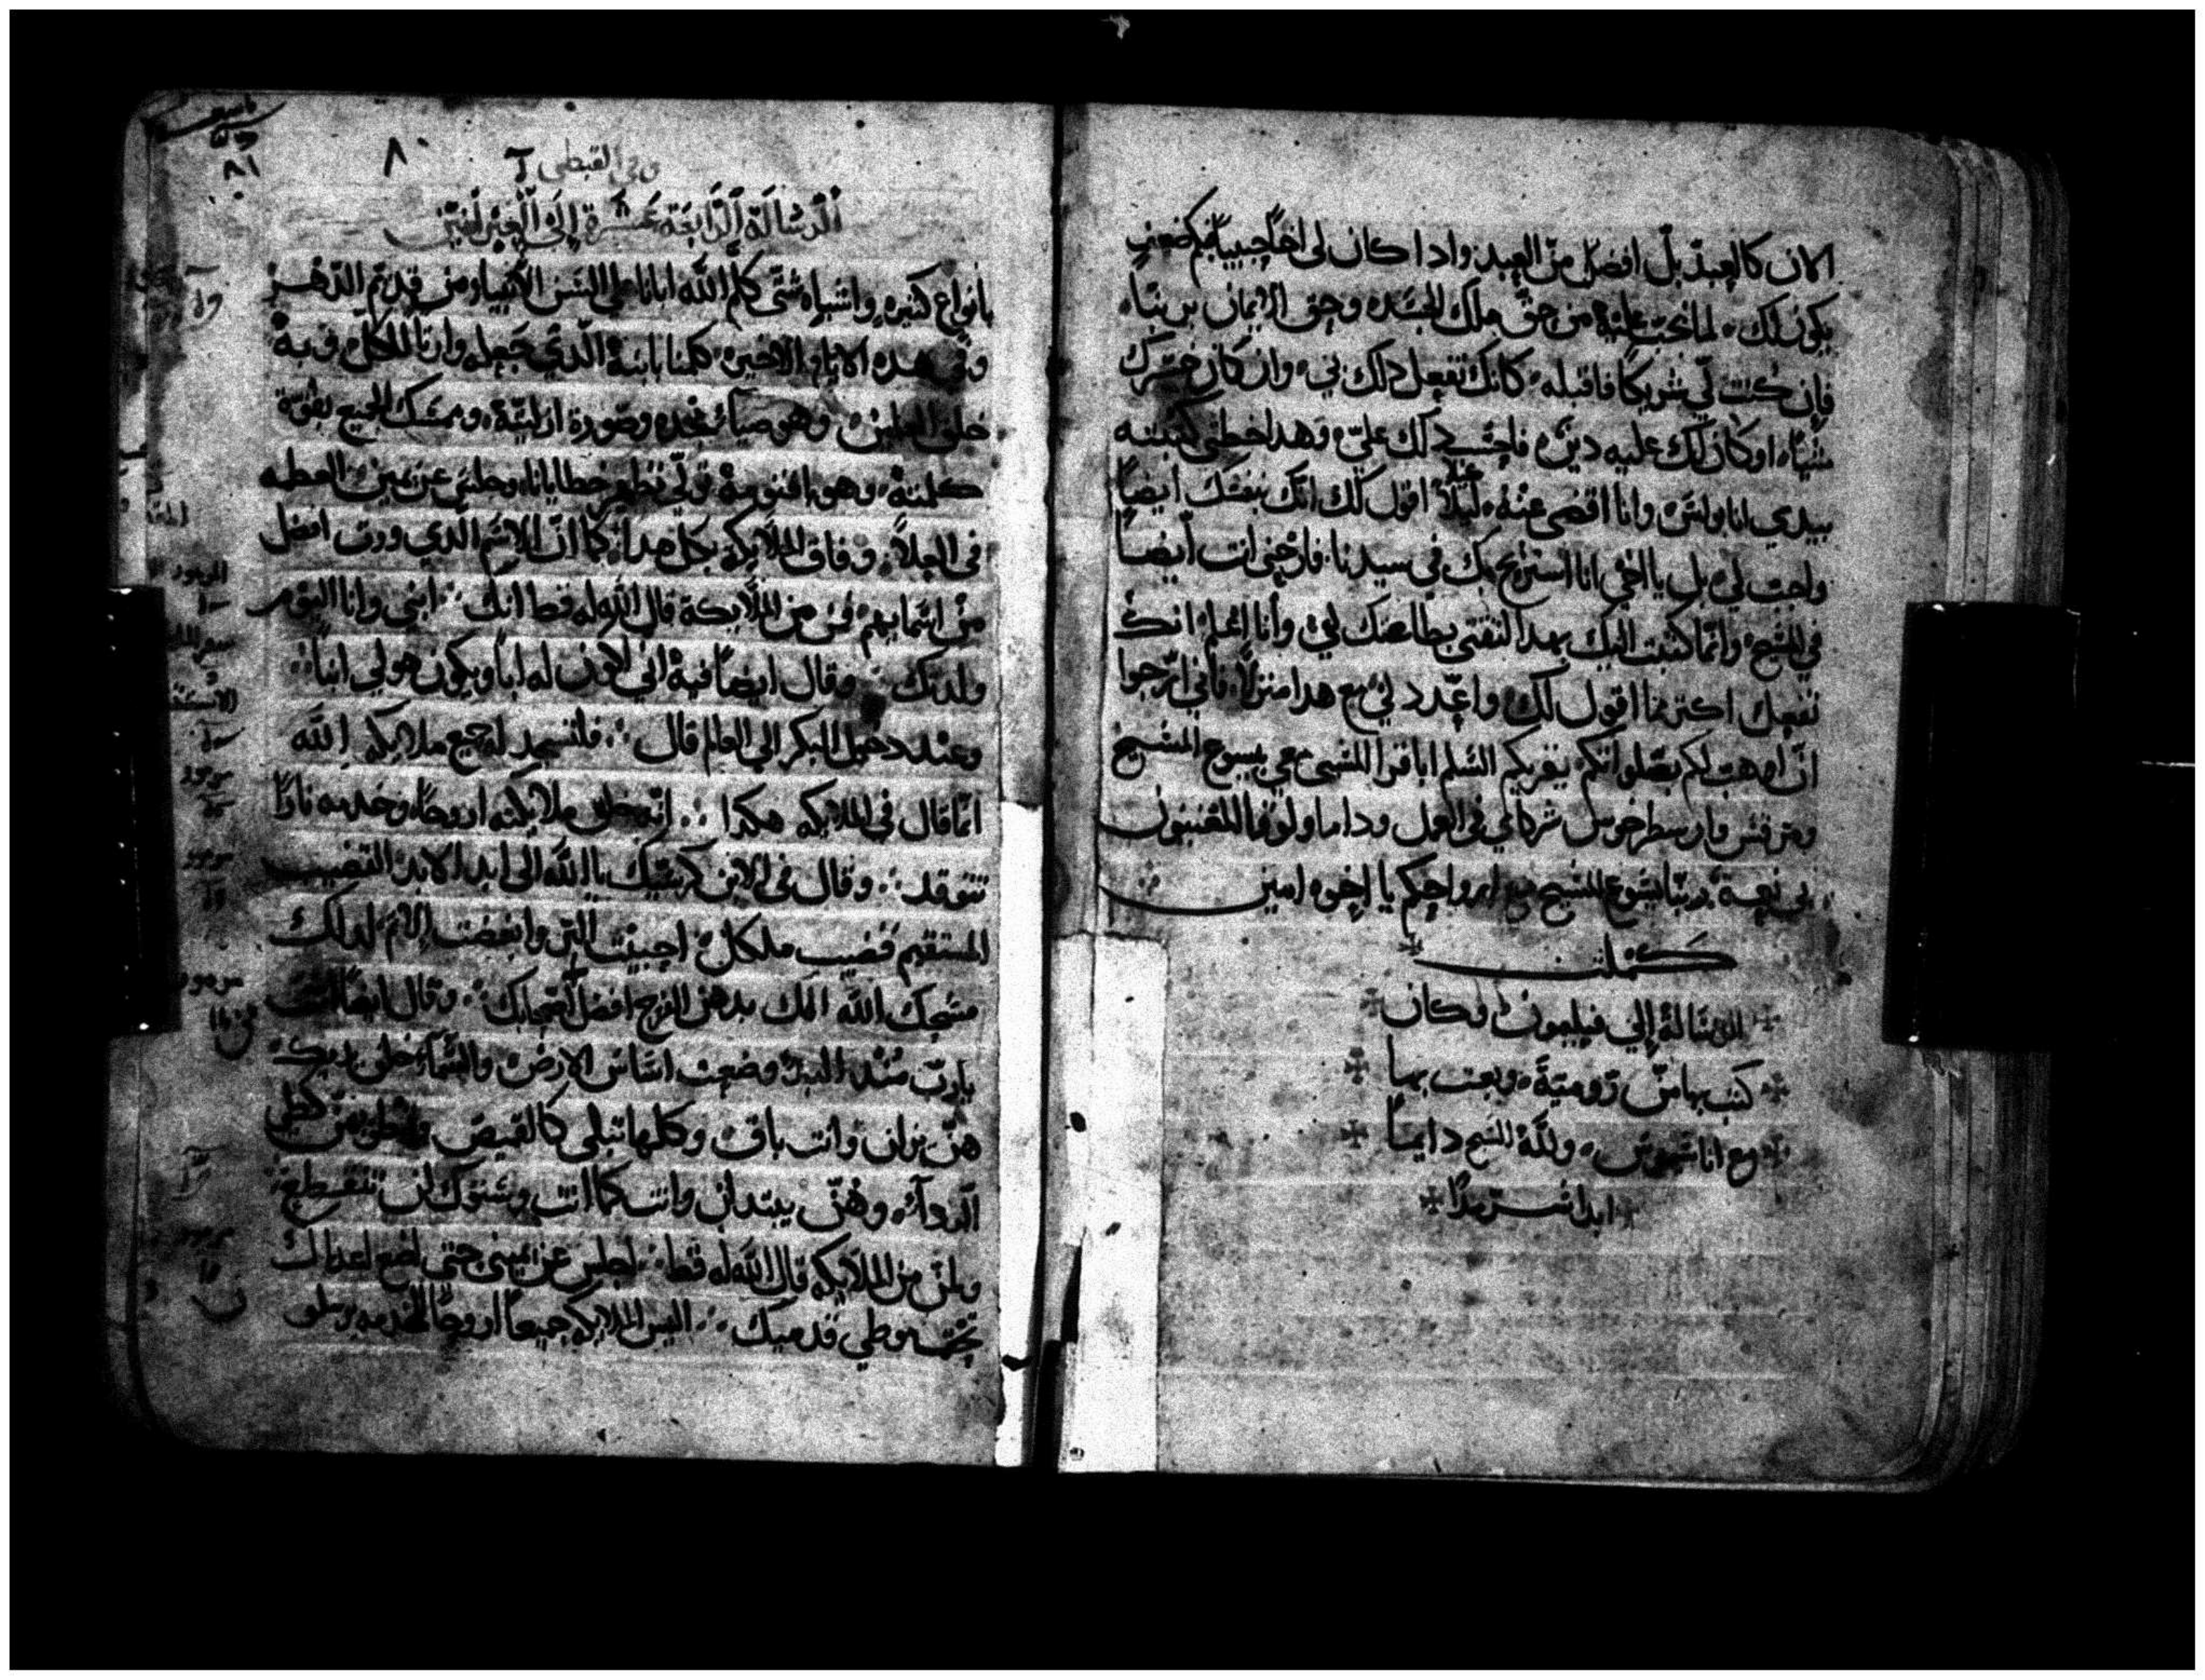 الان كالعبد بل افضل من العبد واد اكان لى اخاً حبيباً فبكم ضعفٍ
يكون لك لما يجب عليه من حق ملك الجسد وحق الايمان بربنا
فان كنت لي شريكاً فاقبله كانك تفعل دلك بي وان كان خسرك
شياً او كان لك عليه دين فاحسب دلك علي وهدا خطي كتبته
بيدي انا بولس وانا اقضى عنه ليلا اقول لك انك بنفسك ايضاً
واجب لي بل يا اخي انا استريح بك في سيدنا فارحني انت ايضاً
في المسيح وانما كتبت اليك بهدا لثقتي بطاعتك لي وأنا اعلم انك
تفعل اكتر مما اقول لك واعدد لي مع هدا منزلاً فأني ارجوا
ان اوهب لكم بصلواتكم يقريكم السلم ابافرا المسبى معي بيسوع المسيح
ومرقس وارسطرخوس شركاي في العمل وداما ولوقا المعينون
لى نعمة ربنا يسوع المسيح مع ارواحكم يا اخوه امين
كملت
الرسالة إلي فيليمون وكان
كتب بها من رومية وبعت بها
مع اناسيموس ولله المسيح دايماً
ابدا سرمدًا
٨٠
وفى القبطى
٨١
ألرسَالَة ألرَّابعَة عَشرَة إلَى العِبرانيِّن
بأنواع كثيره واشباه شتى كلم الله ابانا على السن الأنبياء من قديم الدهر
وفى هده الايام الاخيره كلمنا بابنه الدي جعله وارثا للكل وبه
خلق العلمين وهو ضياء مجده وصورة ازليته وممسك الجميع بقوة
كلمته وهو باقنومه تولي تطهير خطايانا وجلس عن يمين العظمه
فى العلاً وفاق الملايكة بكل هدا كما ان الاسم الدي ورت افضل
من اسمايهم فمن من الملايكة قال الله له قط انك ابني وانا اليوم
ولدتك وقال ايضاً فيه اني اكون له اباً ويكون هو لي ابناً
وعند دخول البكر الي العالم قال فلتسجد له جميع ملايكه الله
انما قال في الملايكه هكدا انه خلق ملايكته ارواحاً وخدمه نارًا
تتوقد وقال فى الابن كرسيك يا الله الى ابد الابد القضيب
المستقيم قضيب ملكك احببت البر وابغضت الاثم لدلك
مسحك الله الهك بدهن الفرح افضل اصحابك وقال ايضاً انت
يارب مند البدؤ وضعت اساس الارض والسماء خلق يديك
هن يزلن وانت باق وكلها تبلى كالقميص وتطوهن كطي
الرداء وهن يبتدلن وانت كما انت وسنوك لن تنقطع
ولمن من الملايكه قال الله له قط اجلس عن يميني حتى اضع اعداك
تحت موطي قدميك اليس الملايكه جميعاً ارواحاً للخدمه يرسلو